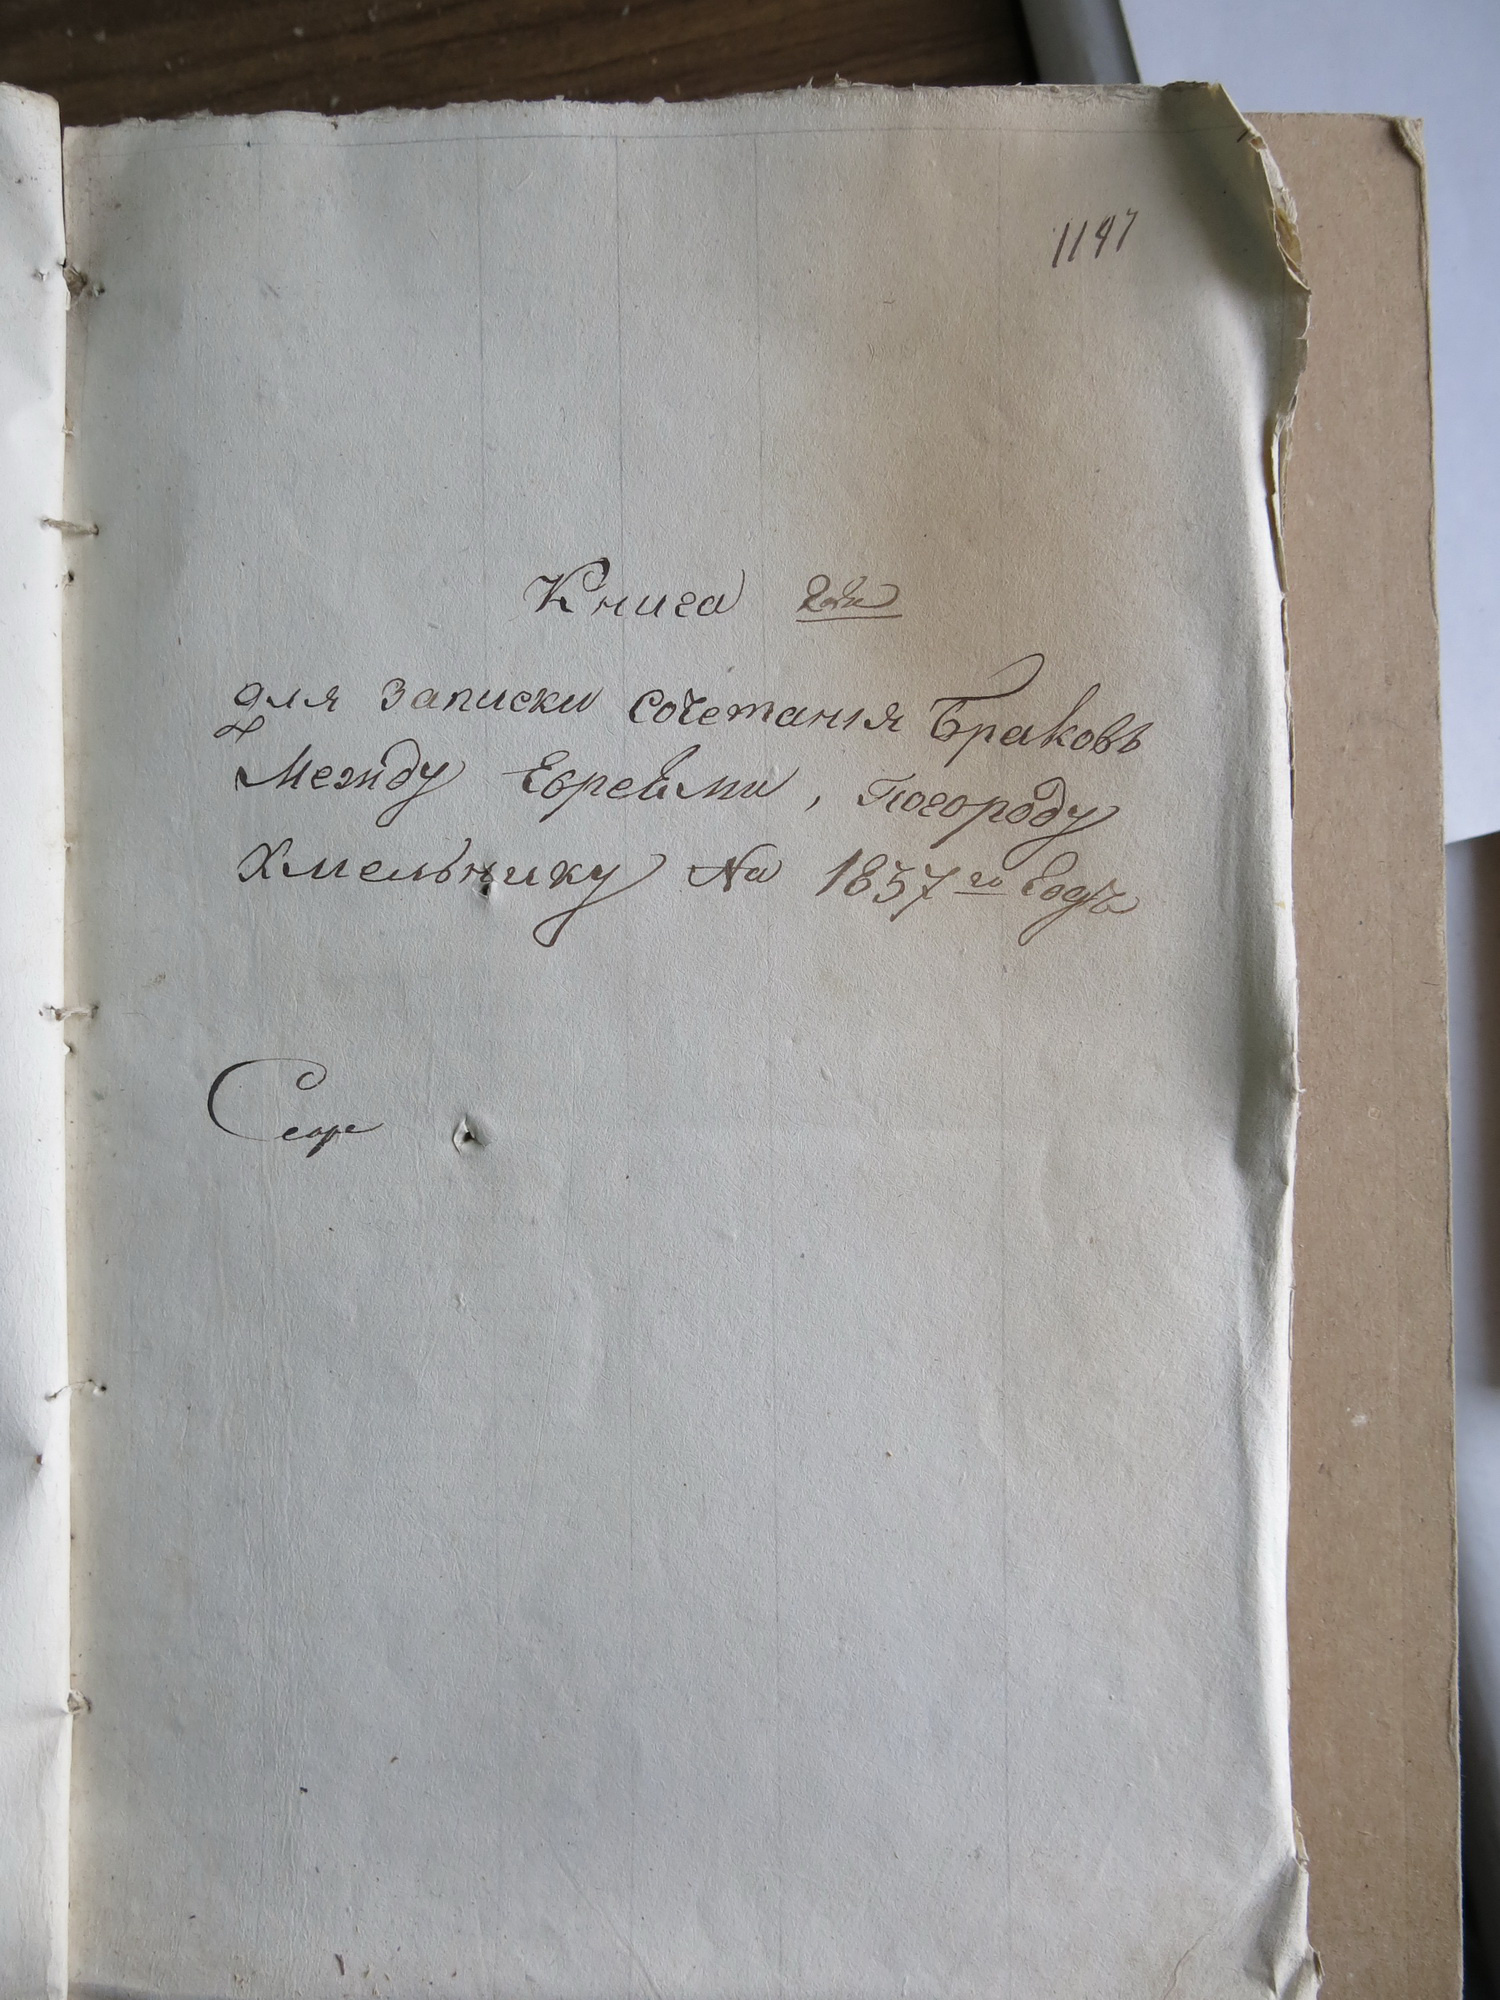 1197
Книга 2ая
для записки сочетанія Браковъ
Между Евреями, погороду
Хмельнику На 1857го Годъ